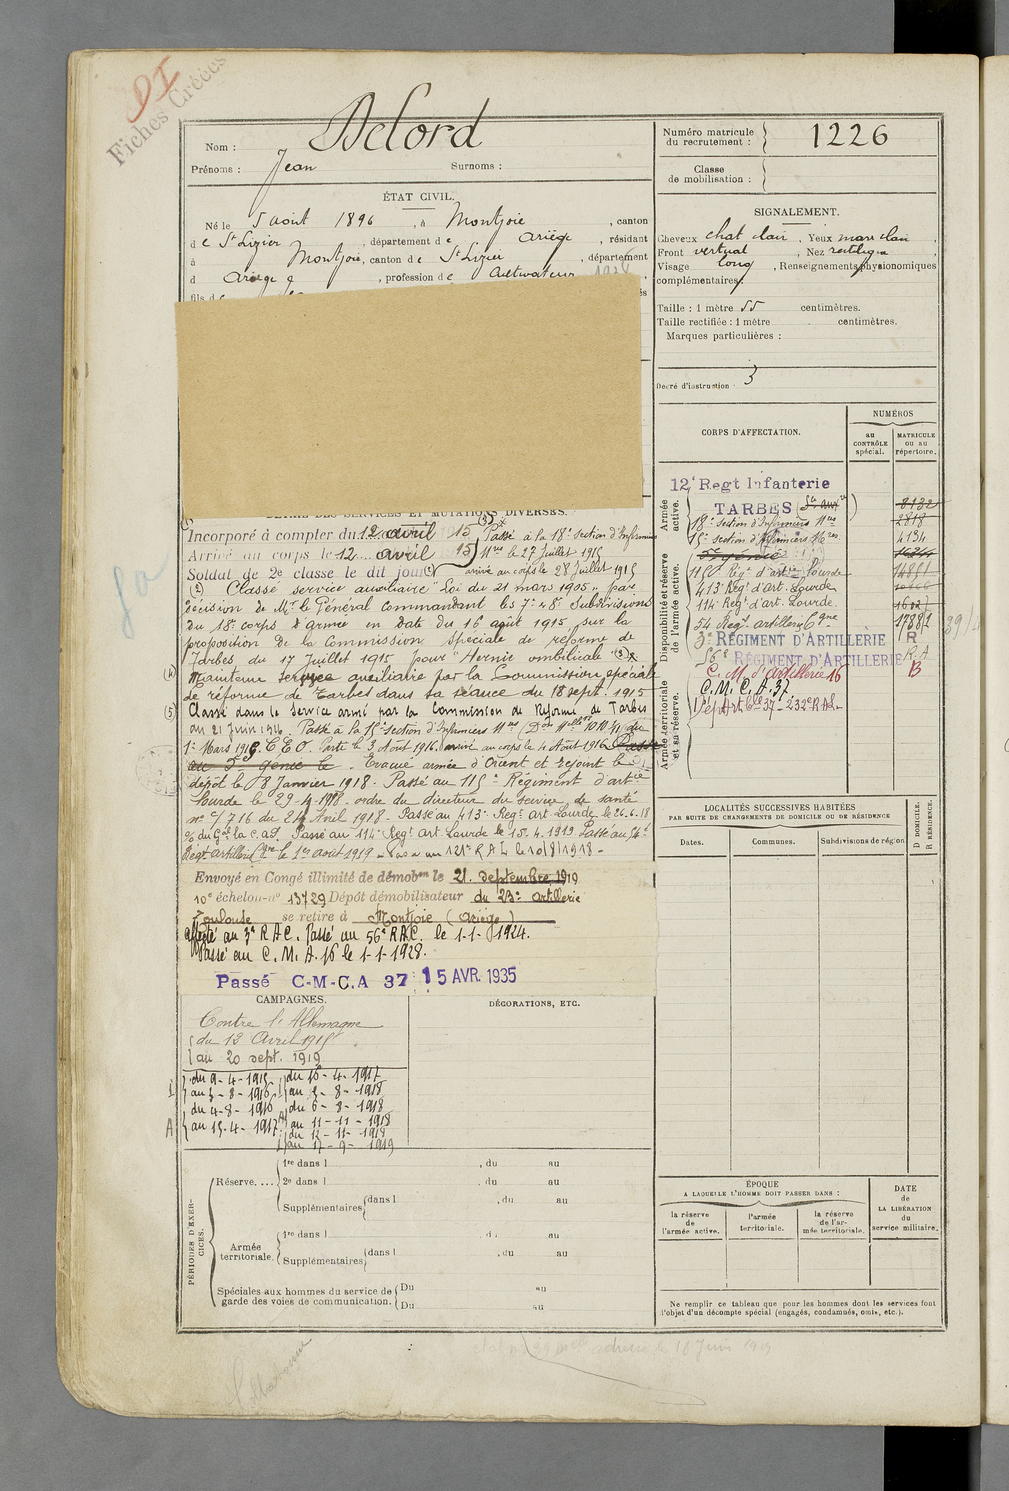 DI
Fiches Créées
Nom : Delord
Prénoms : Jean Surnoms :
Numéro matricule du recrutement : 1226
Classe de mobilisation :
ÉTAT CIVIL.
Né le 5 août 1896, à Montjoie, canton
de St Lizier, département de Ariège, résidant
à Montjoie, canton de St Lizier, département
d Ariège, profession de Cultivateur
fils de
SIGNALEMENT.
Cheveux chat clair, Yeux marr clair,
Front vertical, Nez rectiligne
Visage long, Renseignements physionomiques
complémentaires :
Taille : 1 mètre 55 centimètres.
Taille rectifiée : 1 mètre centimètres.
Marques particulières :
Degré d'instruction : 3
CORPS D'AFFECTATION.
NUMÉROS
au CONTRÔLE spécial.
MATRICULE ou au répertoire.
Armée active.
Disponibilité et réserve de l'armée active.
Armée territoriale et sa réserve.
12e Regt Infanterie
TARBES Sce auxre 8132
18e section d'Infirmiers Mres 2818
15e section d'Infirmiers Mres 4134
5e génie
115e Régt d'artie Lourde
413e Régt d'art. Lourde
114e Régt d'art. Lourde.
54 Regt artillerie Cgne
3e RÉGIMENT D'ARTILLERIE R
56e RÉGIMENT D'ARTILLERIE R.A
C. M. d'artillerie 16 B
C. M. C. A. 37
Dépt Art. Cle 37 - 232e R.A.L.
DÉTAIL DES SERVICES ET MUTATIONS DIVERSES.
Incorporé à compter du 12 avril 1915 (3) Passé à la 18e section d'Infirmiers
Arrivé au corps le 12 avril 1915 Mres le 27 Juillet 1915
Soldat de 2e classe le dit jour arrivé au corps le 28 Juillet 1915
(2) Classé service auxiliaire "Loi du 21 mars 1905" par
décision de Mr le Général commandant les 7e & 8e Subdivisions
du 18e corps d'armée en date du 16 août 1915, sur la
proposition de la Commission spéciale de réforme de
Tarbes, du 17 Juillet 1915 pour "Hernie ombilicale" (3)
(4) Maintenu service auxiliaire par la Commission spéciale
de réforme de Tarbes dans sa séance du 18 sept. 1915
(5) Classé dans le service armé par la Commission de Réforme de Tarbes
du 21 Juin 1916. Passé à la 15e section d'Infirmiers Mres
1er Mars 1916 C E O. Parti le 3 Août 1916. arrivé au corps le 4 Août 1916. Passé
au 5e génie le. Evacué armée d'Orient et rejoint le
dépôt le 8 Janvier 1918. Passé au 115e Régiment d'artie
Lourde le 29-4-1918 - ordre du directeur du service de santé
no c/716 du 24 Avril 1918 - Passé au 413e Regt art Lourde le 26.6.18
Passé au 114e Regt art Lourde le 15.4.1919 Passé au 54e
Regt artillerie Cgne le 1er août 1919 - Passé au 121e R A L le 10/8/1918 -
Envoyé en Congé illimité de démobon le 21. septembre 1919
10e échelon no 13729 Dépôt démobilisateur du 23e artillerie
Toulouse se retire à Montjoie (Ariège)
Affecté au 3e R A C. Passé au 56e R.A.C. le 1-1-1924.
Passé au C. M. A. 16 le 1-1-1928.
Passé C-M-C.A 37 15 AVR. 1935
CAMPAGNES.
DÉCORATIONS, ETC.
Contre l'Allemagne
du 12 Avril 1915
au 20 sept. 1919
du 9-4-1915 du 16-4-1917
au 3-8-1916 au 5-8-1918
du 4-8-1916 du 6-8-1918
au 15-4-1917 au 11-11-1918
du 12-11-1918
au 17-9-1919
LOCALITÉS SUCCESSIVES HABITÉES
PAR SUITE DE CHANGEMENTS DE DOMICILE OU DE RÉSIDENCE
Dates.
Communes.
Subdivisions de région.
D DOMICILE.
R RÉSIDENCE.
PÉRIODES D'EXERCICES.
Réserve....
1re dans l , du au
2e dans l , du au
Supplémentaires dans l , du au
Armée territoriale.
1re dans l , du au
Supplémentaires dans l , du au
Spéciales aux hommes du service de garde des voies de communication.
Du au
Du au
ÉPOQUE
A LAQUELLE L'HOMME DOIT PASSER DANS :
la réserve de l'armée active.
l'armée territoriale.
la réserve de l'armée territoriale.
DATE de LA LIBÉRATION du service militaire.
Ne remplir ce tableau que pour les hommes dont les services font
l'objet d'un décompte spécial (engagés, condamnés, omis, etc.).